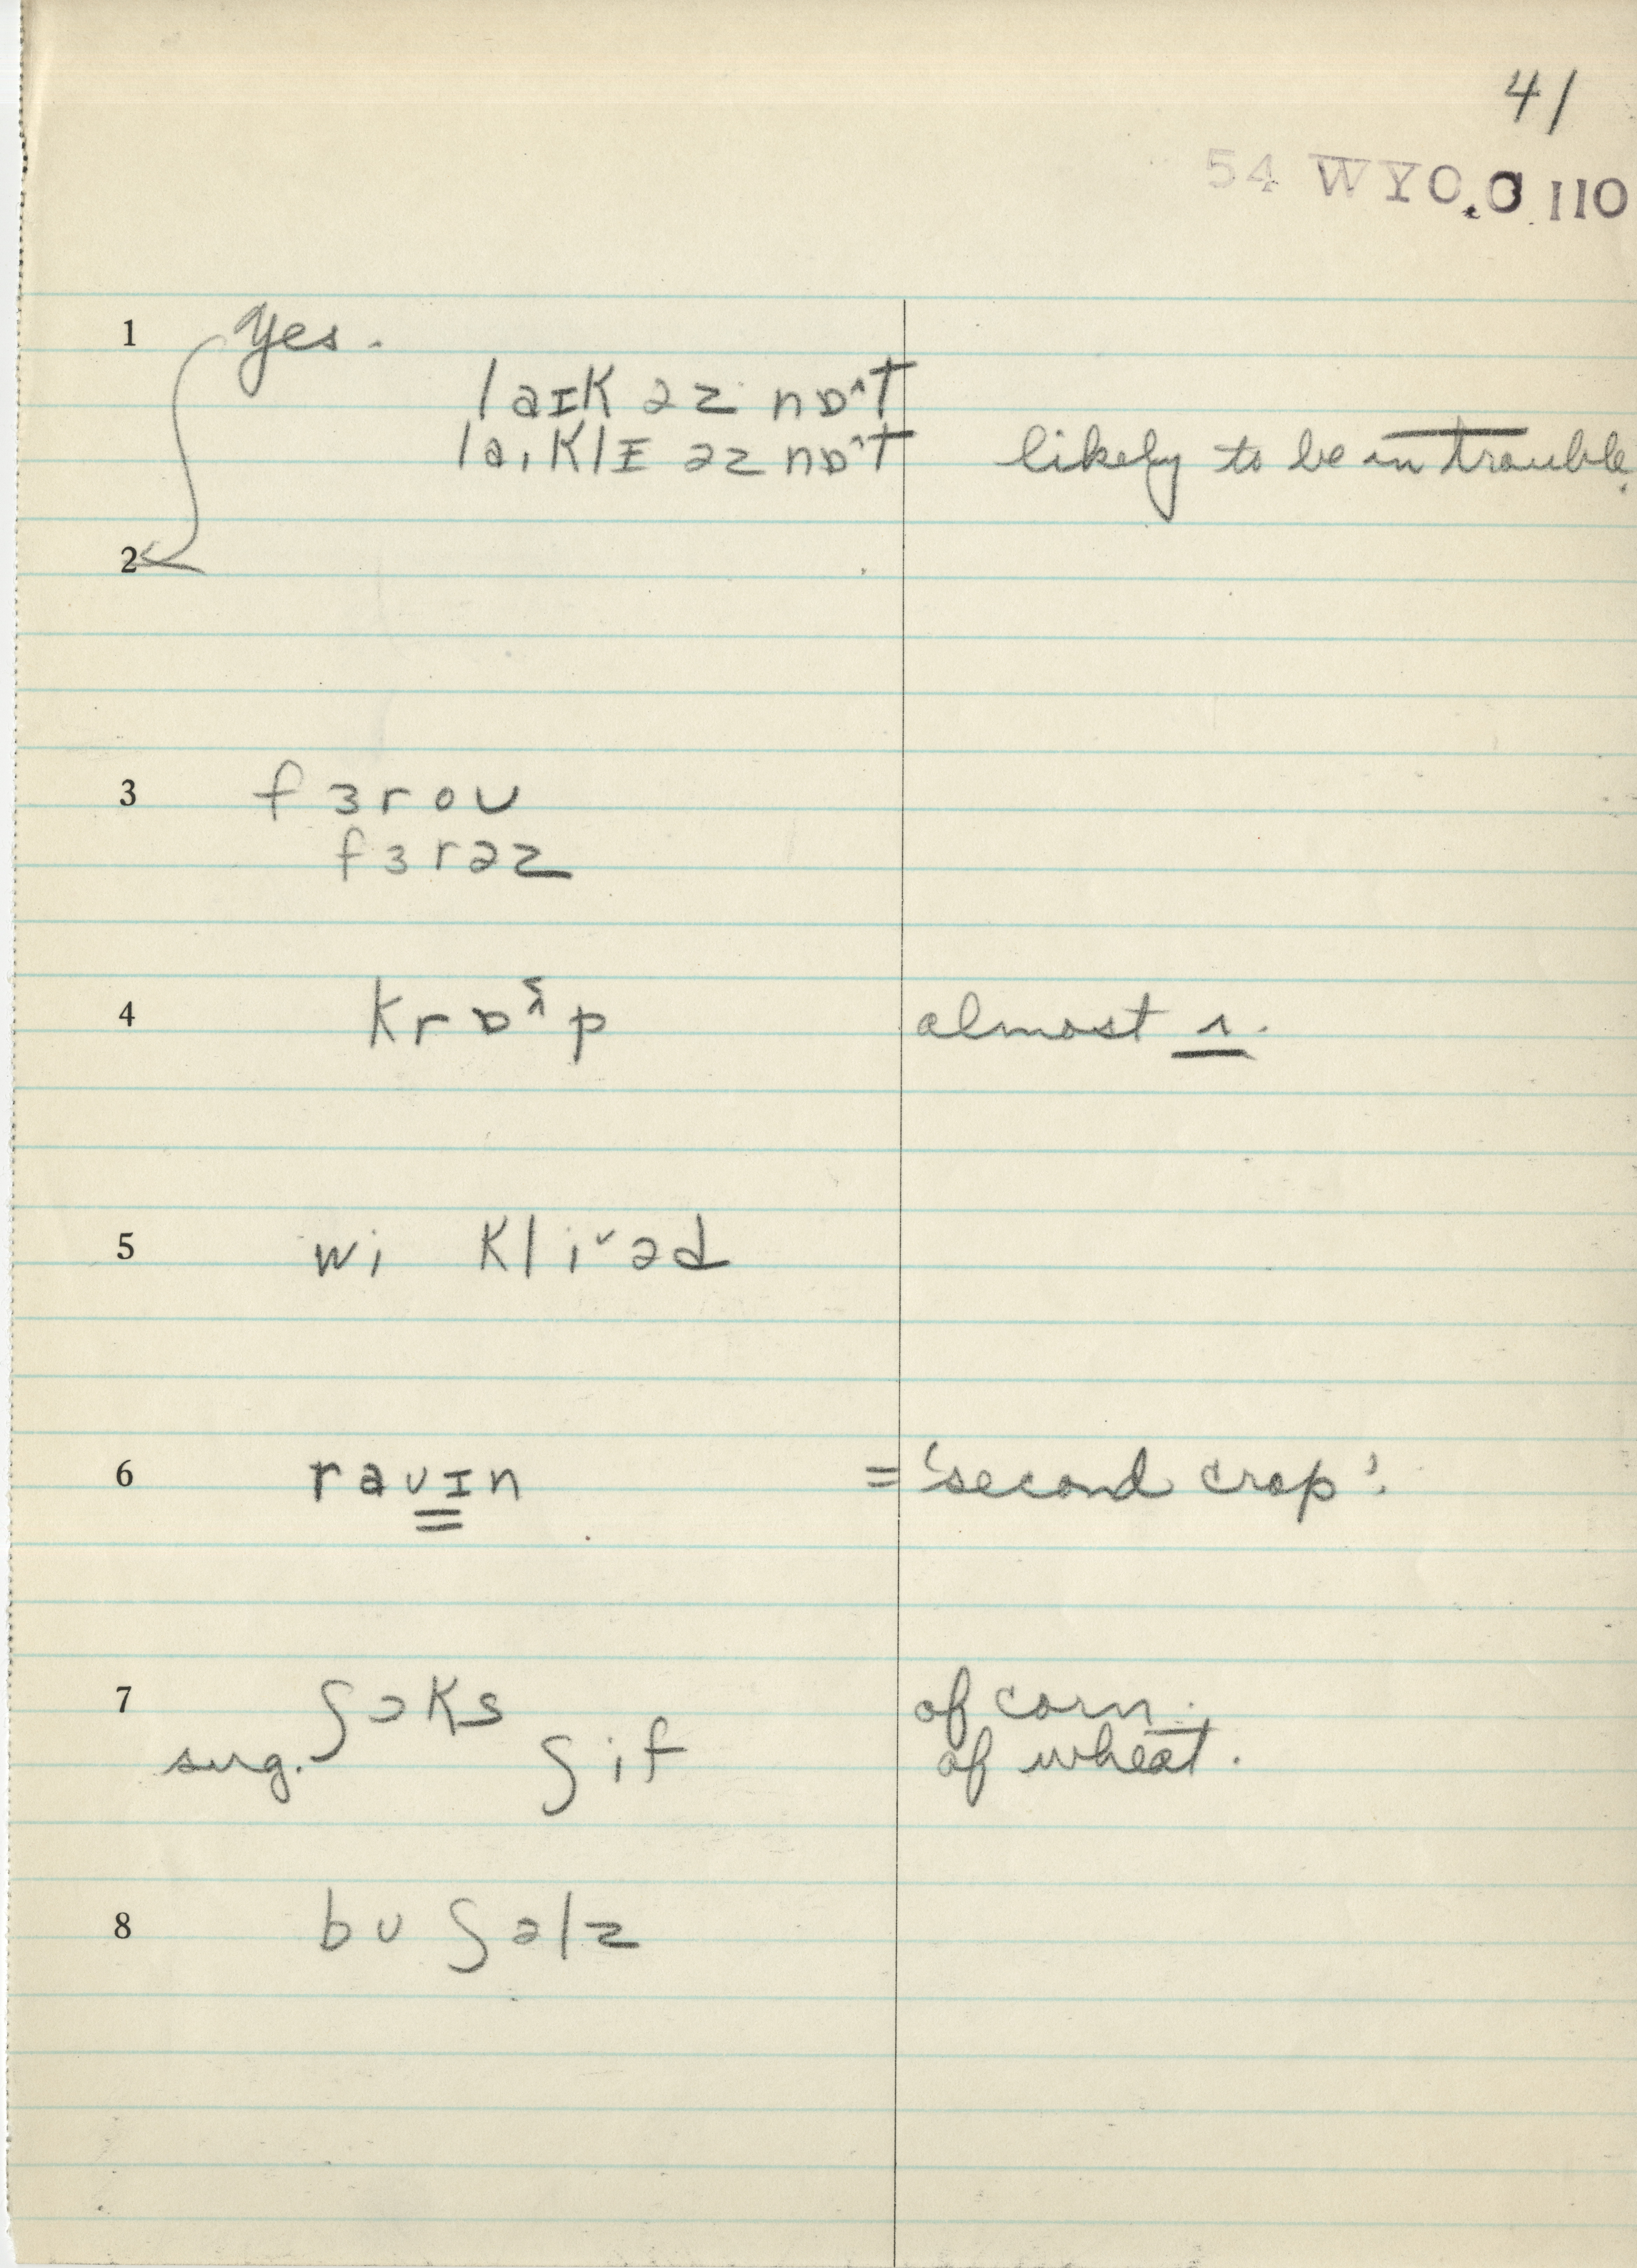 41
54 WYO.O 110
1 Yes.
laɪk əz nɒ^t
laiklɪ əz nɒ^t likely to be in trouble.
2
3 fɜroʊ
fɜrəz
4 krɒ^p almost ʌ.
5 wi kliˇəd
6 raʊɪn = 'second crop'.
7 ʃɔks of corn.
sug. ʃif of wheat.
8 bʊʃəlz